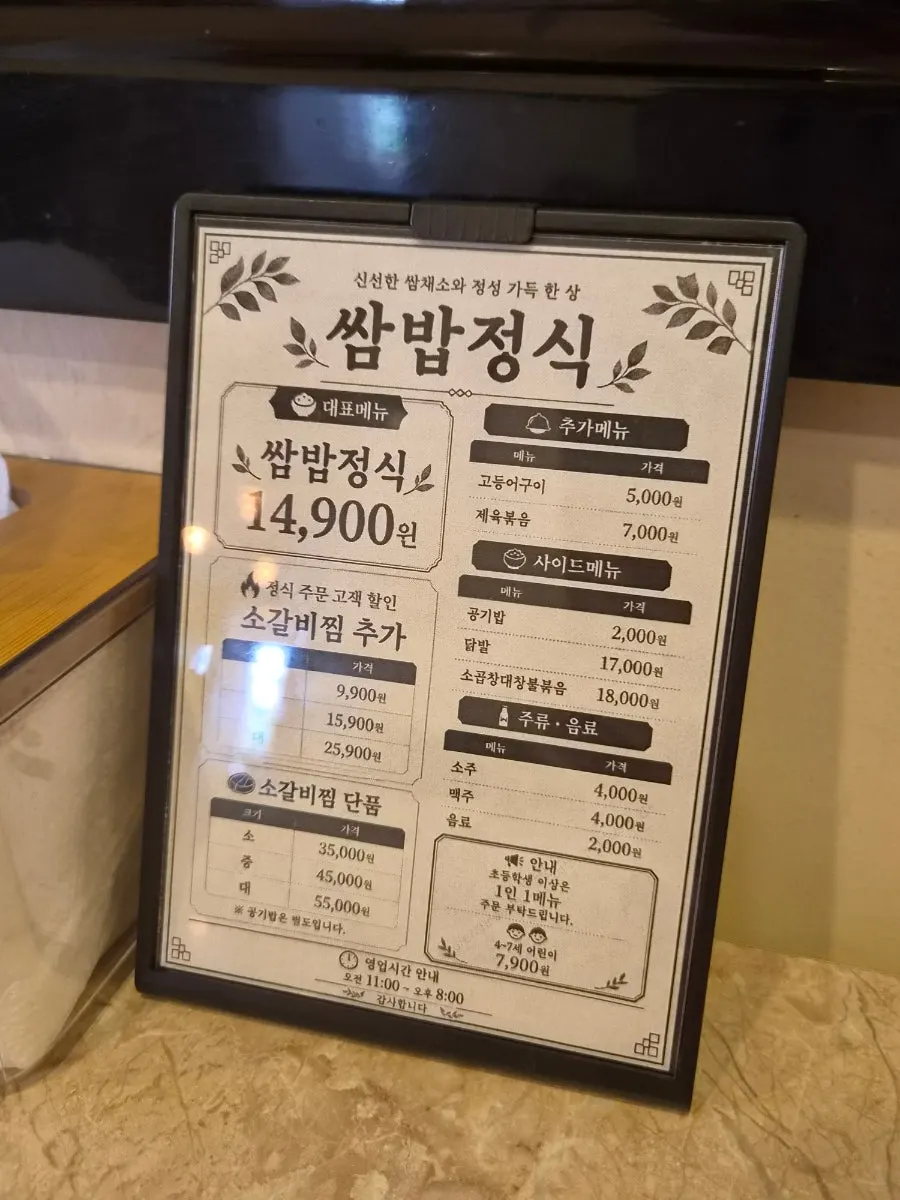 신선한 쌈채소와 정성 가득 한 상
쌈밥정식
대표메뉴
쌈밥정식
14,900원
정식 주문 고객 할인
소갈비찜 추가
가격
9,900원
15,900원
대 25,900원
소갈비찜 단품
크기 가격
소 35,000원
중 45,000원
대 55,000원
※ 공기밥은 별도입니다.
추가메뉴
메뉴 가격
고등어구이 5,000원
제육볶음 7,000원
사이드메뉴
메뉴 가격
공기밥 2,000원
닭발 17,000원
소곱창대창불볶음 18,000원
주류·음료
메뉴 가격
소주 4,000원
맥주 4,000원
음료 2,000원
안내
초등학생 이상은
1인 1메뉴
주문 부탁드립니다.
4~7세 어린이
7,900원
영업시간 안내
오전 11:00 ~ 오후 8:00
감사합니다